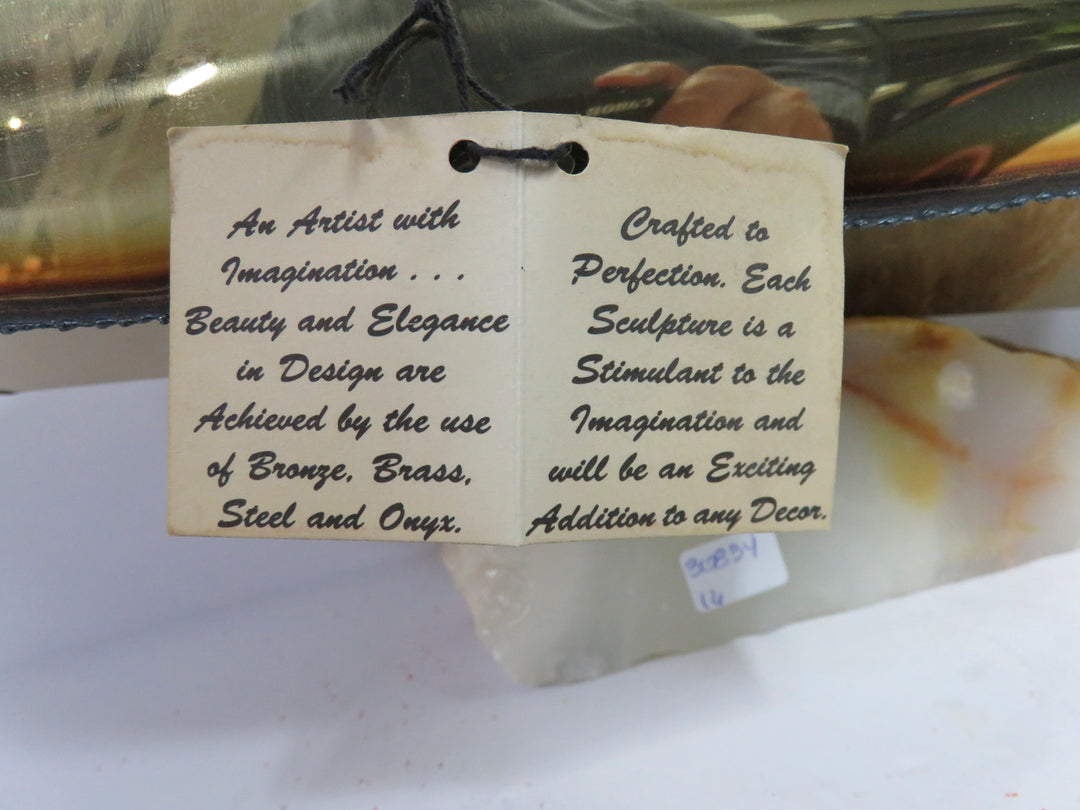 An Artist with
Imagination . . .
Beauty and Elegance
in Design are
Achieved by the use
of Bronze, Brass,
Steel and Onyx.
Crafted to
Perfection. Each
Sculpture is a
Stimulant to the
Imagination and
will be an Exciting
Addition to any Decor.
30834
16